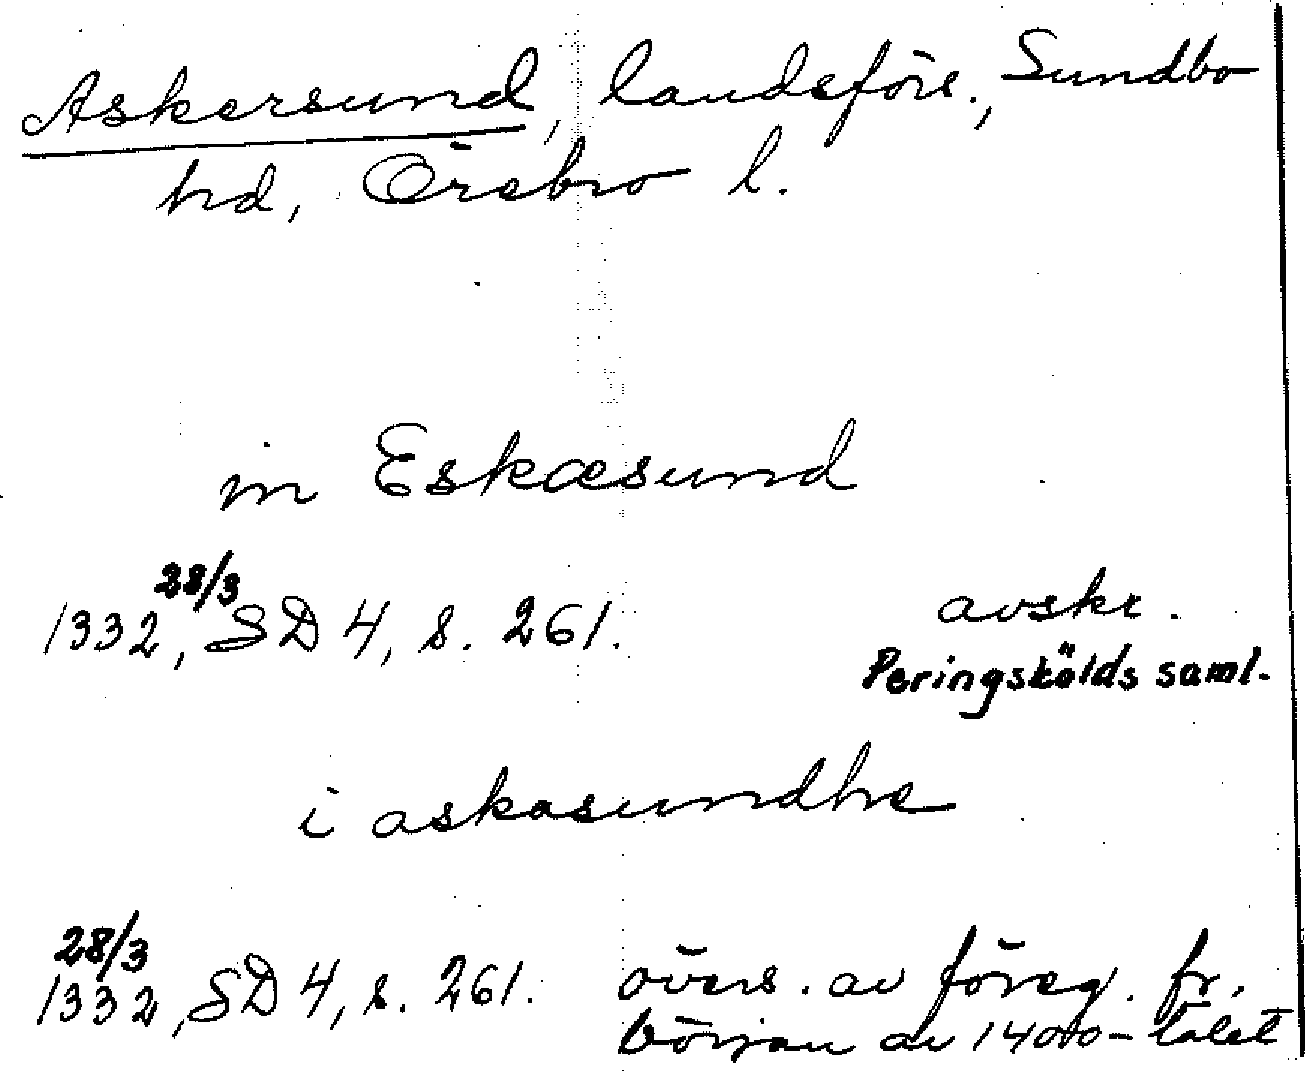 Askersund, landsförs., Sundbo
hd, Örebro l.
in Eskæsund
28/3
1332, SD 4, s. 261. avskr.
Peringskölds saml.
i askasundhe
28/3
1332, SD 4, s. 261. övers. av föreg. fr.
början av 1400-talet